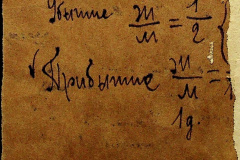 Убытие ж/м = 1/2 {
✓ Прибытие ж/м = 1
1д.